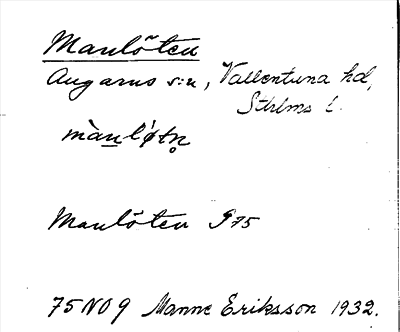 Manlöten
Angarns s:n, Vallentuna hd,
Sthlms l.
mànlø̀tn̥
Manlöten G 75
75 NO 9 Manne Eriksson 1932.